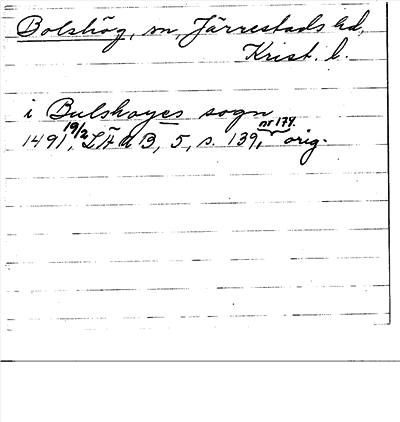 Bolshög, sn, Järrestads hd,
Krist. l.
i Bulshoyes sogn
1491 19/2, LÄ a B, 5, s. 139, nr 179. orig.